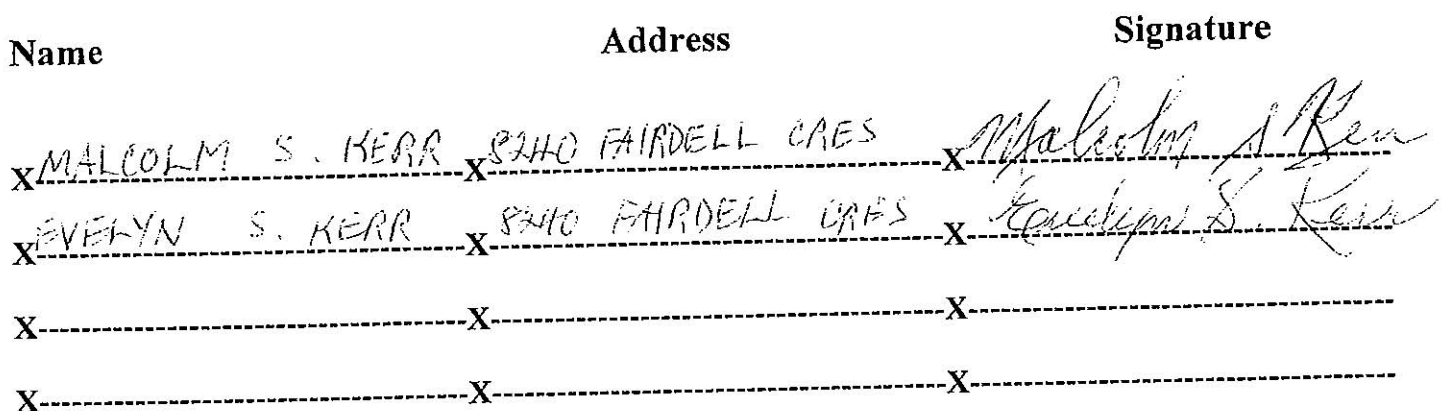 Name Address Signature
X MALCOLM S. KERR X 8240 FAIRDELL CRES X Malcolm S Kerr
X EVELYN S. KERR X 8240 FAIRDELL CRES X Evelyn S. Kerr
X X X
X X X